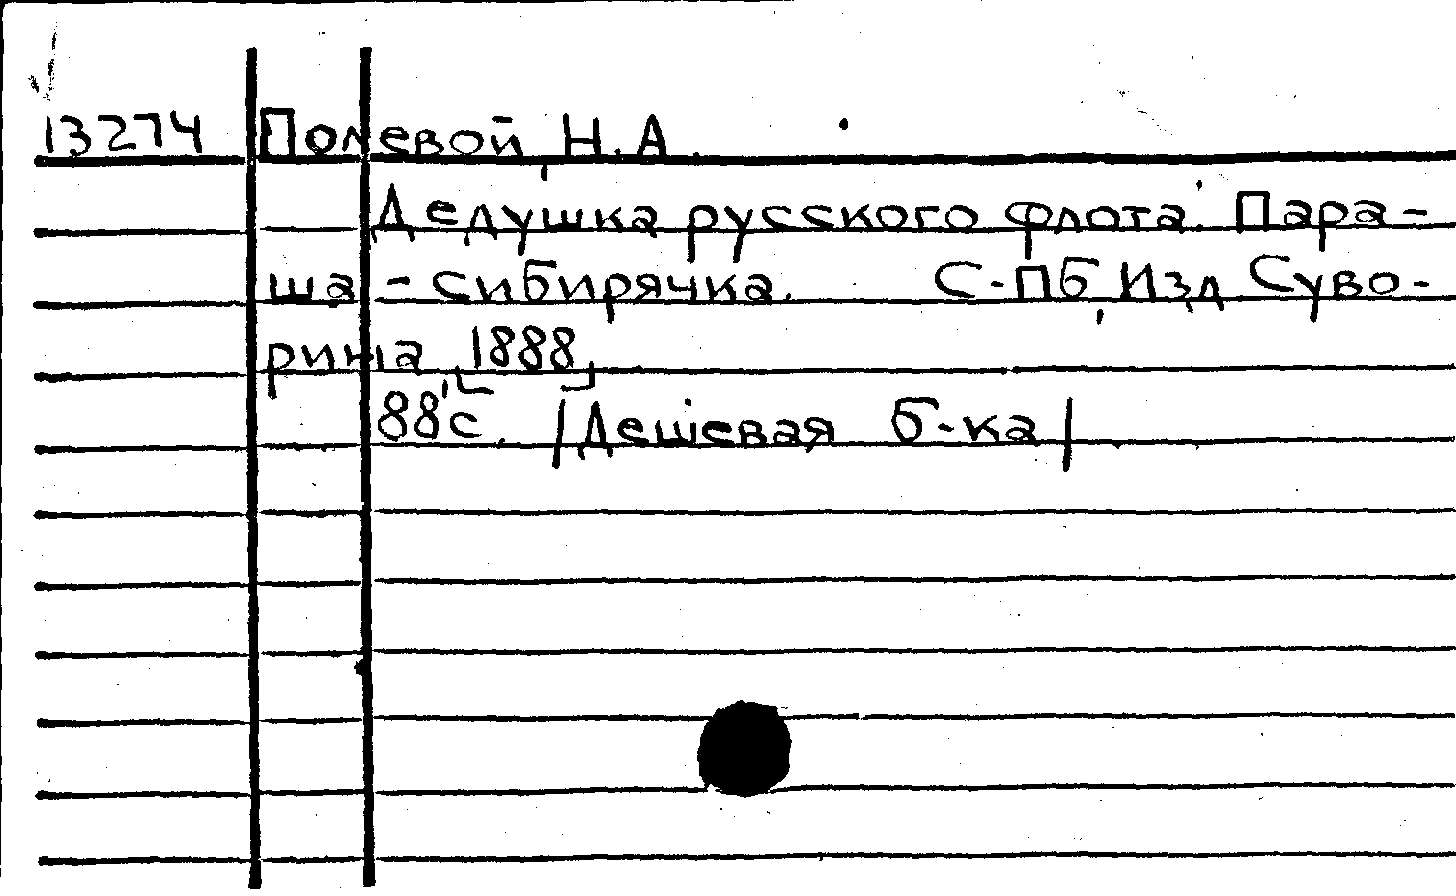 13274 Полевой, Н.А.
Дедушка русского флота. Пара-
ша - сибирячка. С-Пб, Изд Суво-
рина, [1888]
88 с. /Дешевая б-ка/